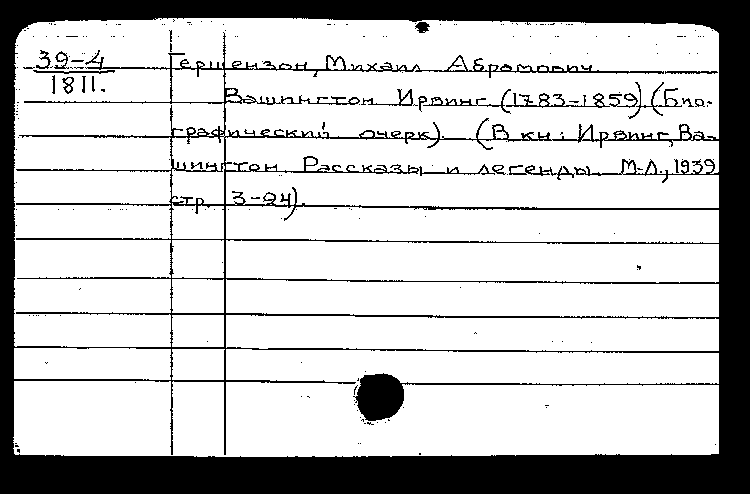 39-4 Гершензон, Михаил Абрамович.
1811. Вашингтон Ирвинг (1783-1859). (Био-
графический очерк). (В кн: Ирвинг, Ва-
шингтон Рассказы и легенды. М-Л., 1939
стр. 3-24).